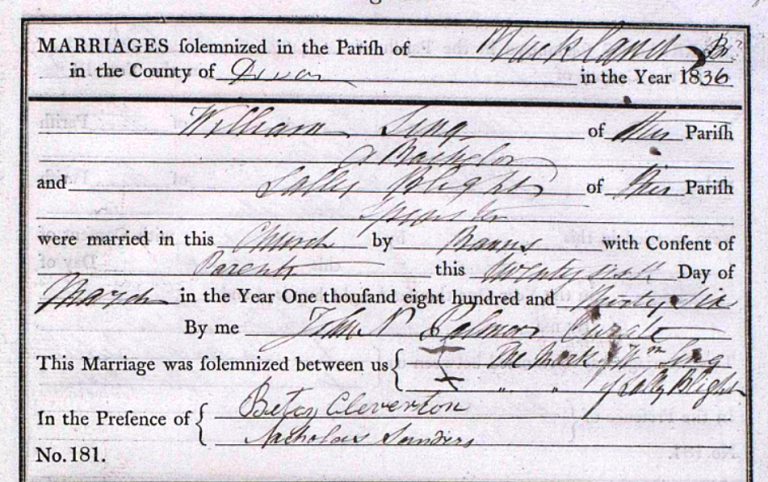 MARRIAGES ſolemnized in the Pariſh of Buckland Br
in the County of Devon in the Year 1836
William Sing of this Pariſh
a Bachelor
and Sally Blight of this Pariſh
Spinster
were married in this Church by Banns with Conſent of
Parents this twenty sixth Day of
March in the Year One thouſand eight hundred and thirty six
By me John N Palmer Curate
This Marriage was ſolemnized between us { X The Mark of Wm Sing
X " " of Sally Blight
In the Preſence of { Betsy Cleverton
Nicholas Sanders
No. 181.